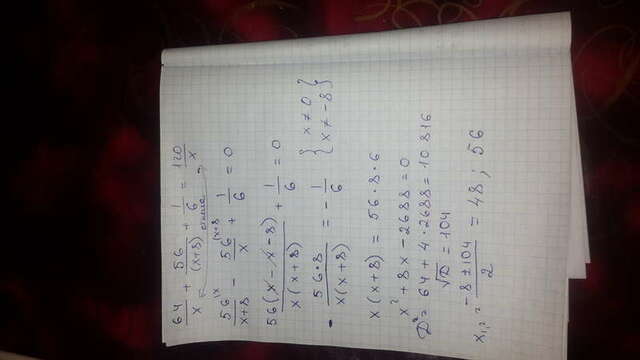 64/x + 56/(x+8) + 1/6 = 120/x
56/(x+8) - 56/x + 1/6 = 0
56(x-x-8)/x(x+8) + 1/6 = 0
{ x ≠ 0 {
{ x ≠ -8 }
- 56·8/x(x+8) = - 1/6
x(x+8) = 56·8·6
x² + 8x - 2688 = 0
D = 64 + 4·2688 = 10816
√D = 104
x₁,₂ = -8±104/2 = 48; 56